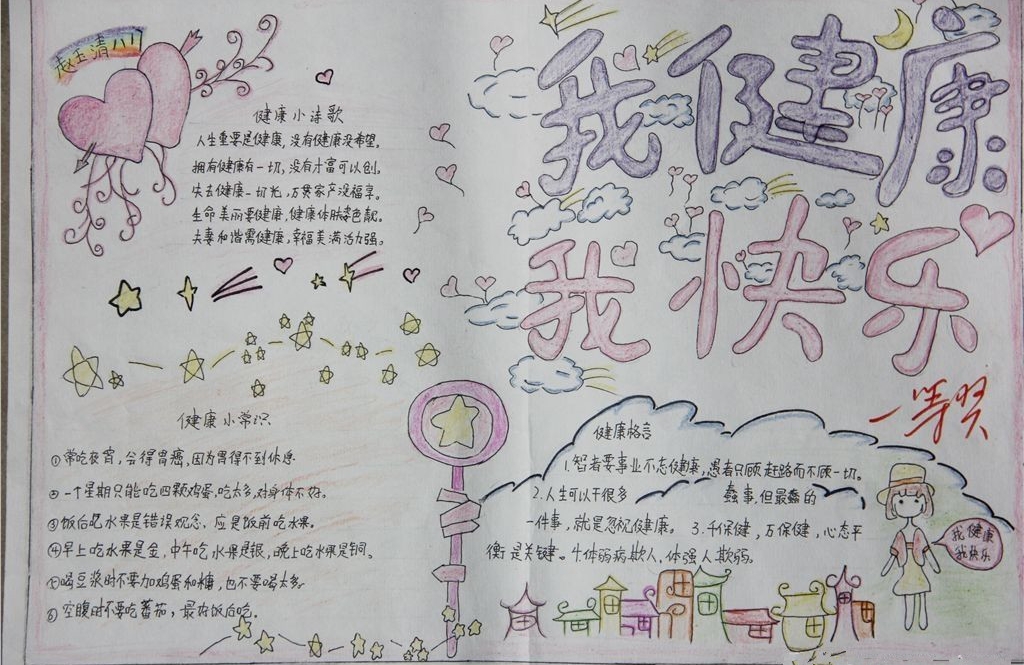 赵玉清八1
我健康
我快乐
一等奖
健康小诗歌
人生重要是健康，没有健康没希望。
拥有健康有一切，没有才富可以创。
失去健康一切光，万贯家产没福享。
生命美丽要健康，健康体肤姿色靓。
夫妻和谐需健康，幸福美满活力强。
健康小常识
①常吃夜宵，会得胃癌，因为胃得不到休息
②一个星期只能吃四颗鸡蛋，吃太多，对身体不好。
③饭后吃水果是错误观念，应是饭前吃水果。
④早上吃水果是金，中午吃水果是银，晚上吃水果是铜。
⑤喝豆浆时不要加鸡蛋和糖，也不要喝太多
⑥空腹时不要吃蕃茄，最好饭后吃。
健康格言
1.智者要事业不忘健康，愚者只顾赶路而不顾一切。
2.人生可以干很多蠢事，但最蠢的
一件事，就是忽视健康。 3.千保健，万保健，心态平
衡是关键。4.体弱病欺人，体强人欺弱。
我健康
我快乐